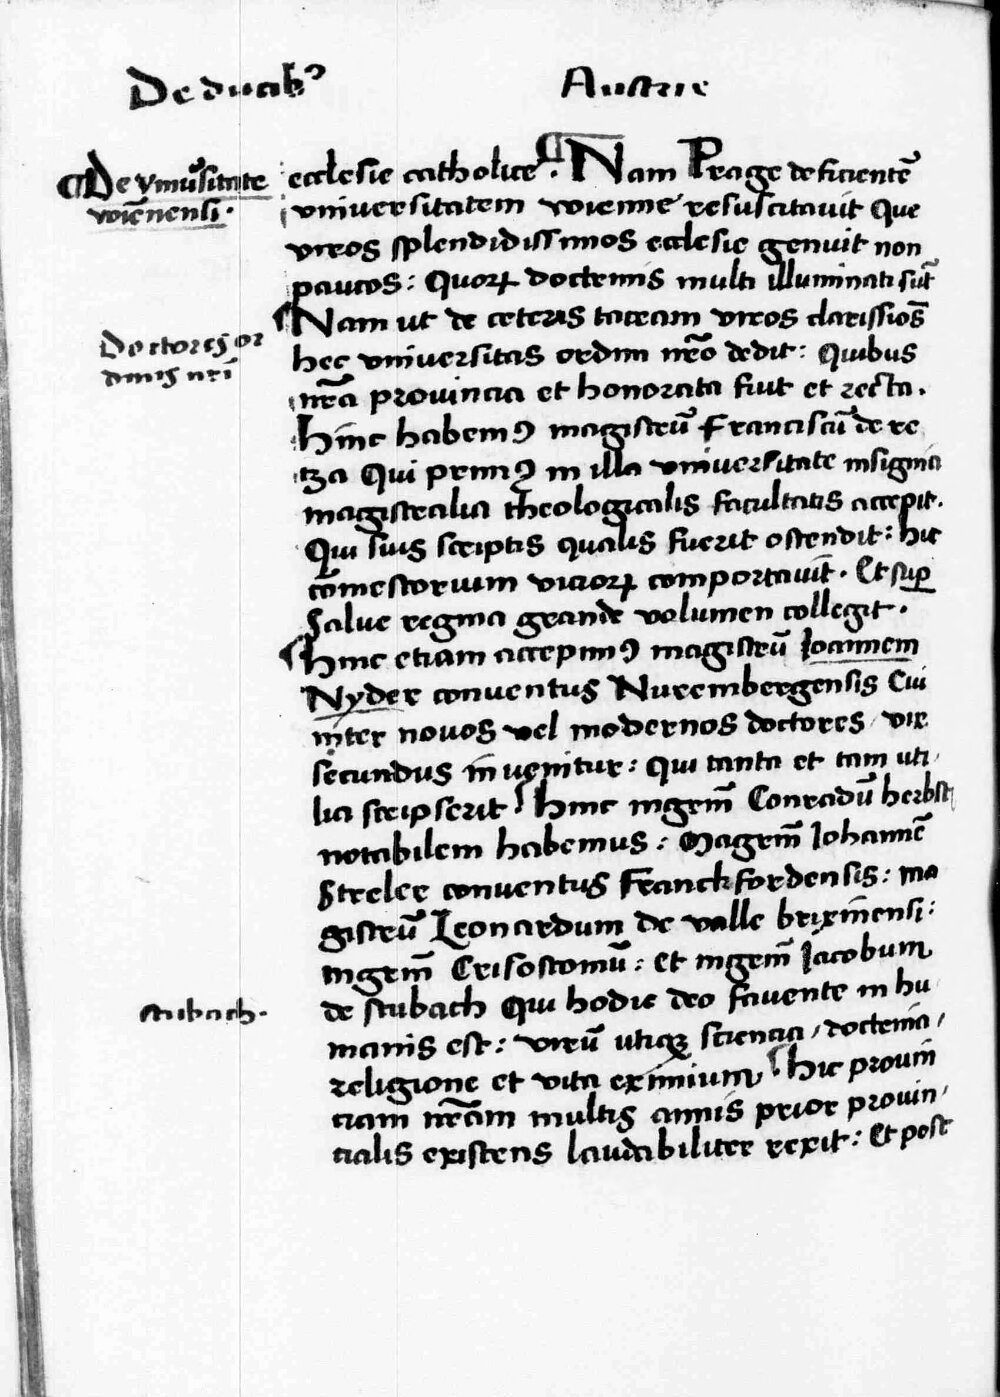 De ducibꝰ Austrie
¶ De vniūsitate
wiēnensi.
ecclesie catholice. ¶ Nam Prage deficientē
universitatem wienne resuscitavit Que
viros splendidissimos ecclesie genuit non
paucos: Quoꝝ doctrinis multi illuminati sūt
Nam ut de ceteris taceam viros clarissīos
Doctores or
dinis nrī
hec universitas ordini nrō dedit: Quibus
nrā provincia et honorata fuit et recta.
Hinc habemꝰ magistrū Franciscū de re
tza Qui primꝰ in illa universitate insignia
magistralia theologicalis facultatis accepit.
Qui suis scriptis qualis fuerit ostendit: hic
cōmestorium vicioꝝ comportavit. Et suꝑ
Salue regina grande volumen collegit.
Hinc etiam accepimꝰ magistrū Ioannem
Nyder conventus Nurembergensis Cui
inter novos vel modernos doctores vix
secundus invenitur: Qui tanta et tam uti
lia scripserit Hinc mgrm̄ Conradū herbst
notabilem habemus: Magrm̄ Iohannē
Streler conventus Franckfordensis: ma
gistrū Leonardum de valle brixinensi:
mgrm̄ Crisostomū: et mgrm̄ Iacobum
stubach.
de stubach Qui hodie deo favente in hu
manis est: virū utiqꝫ sciencia / doctrina /
religione et vita eximium Hic provin
ciam nrām multis annis prior provin
cialis existens laudabiliter rexit: Et post